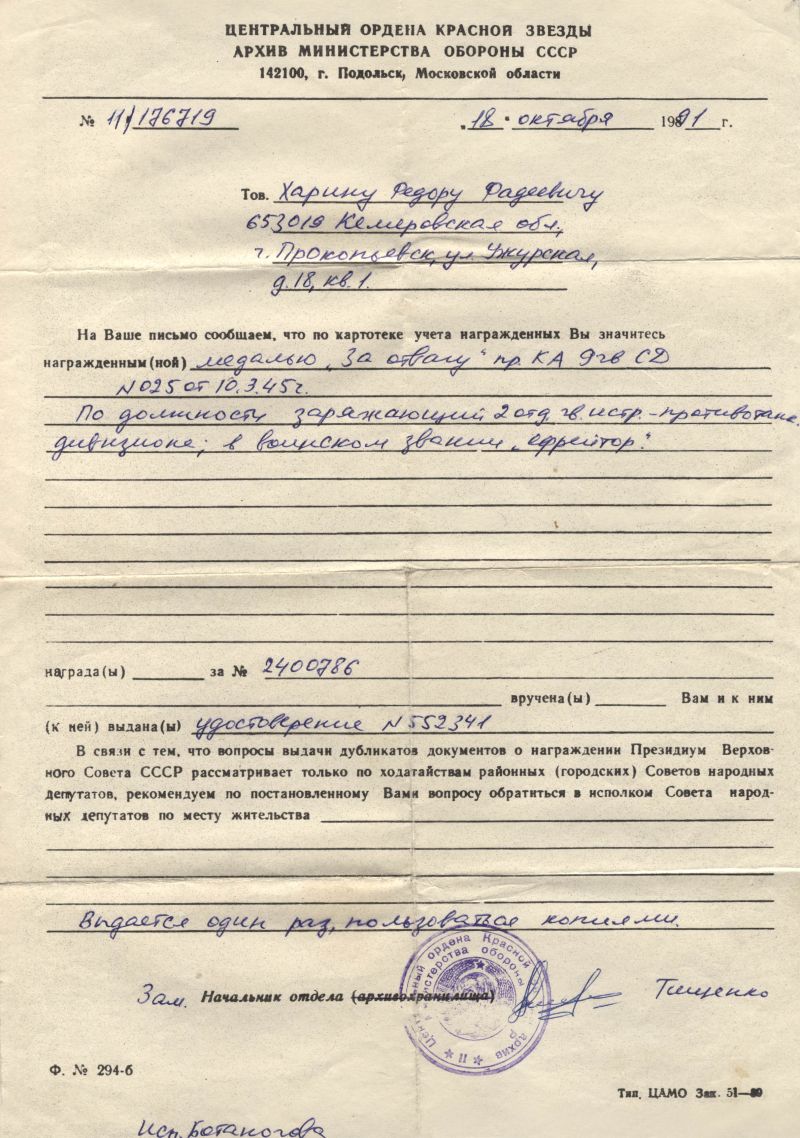 ЦЕНТРАЛЬНЫЙ ОРДЕНА КРАСНОЙ ЗВЕЗДЫ
АРХИВ МИНИСТЕРСТВА ОБОРОНЫ СССР
142100, г. Подольск, Московской области
№ 11/176719 „18" октября 1991 г.
Тов. Харину Федору Фадеевичу
653019 Кемеровская обл.,
г. Прокопьевск, ул Ужурская,
д. 18, кв. 1.
На Ваше письмо сообщаем, что по картотеке учета награжденных Вы значитесь
награжденным(ной) медалью „За отвагу" пр. КА 9 гв СД
N 025 от 10.3.45 г.
По должности заряжающий 2 отд. гв. истр.-противотанк.
дивизиона; в воинском звании „ефрейтор".
награда(ы) за № 2400786
вручена(ы) Вам и к ним
(к ней) выдана(ы) удостоверение N 552341
В связи с тем, что вопросы выдачи дубликатов документов о награждении Президиум Верхов-
ного Совета СССР рассматривает только по ходатайствам районных (городских) Советов народных
депутатов, рекомендуем по постановленному Вами вопросу обратиться в исполком Совета народ-
ных депутатов по месту жительства
Выдается один раз, пользоваться копиями.
Зам. Начальник отдела (архивохранилища) Тищенко
Ф. № 294-б
Тип. ЦАМО Зак. 51—89
Исп. Ботаногова